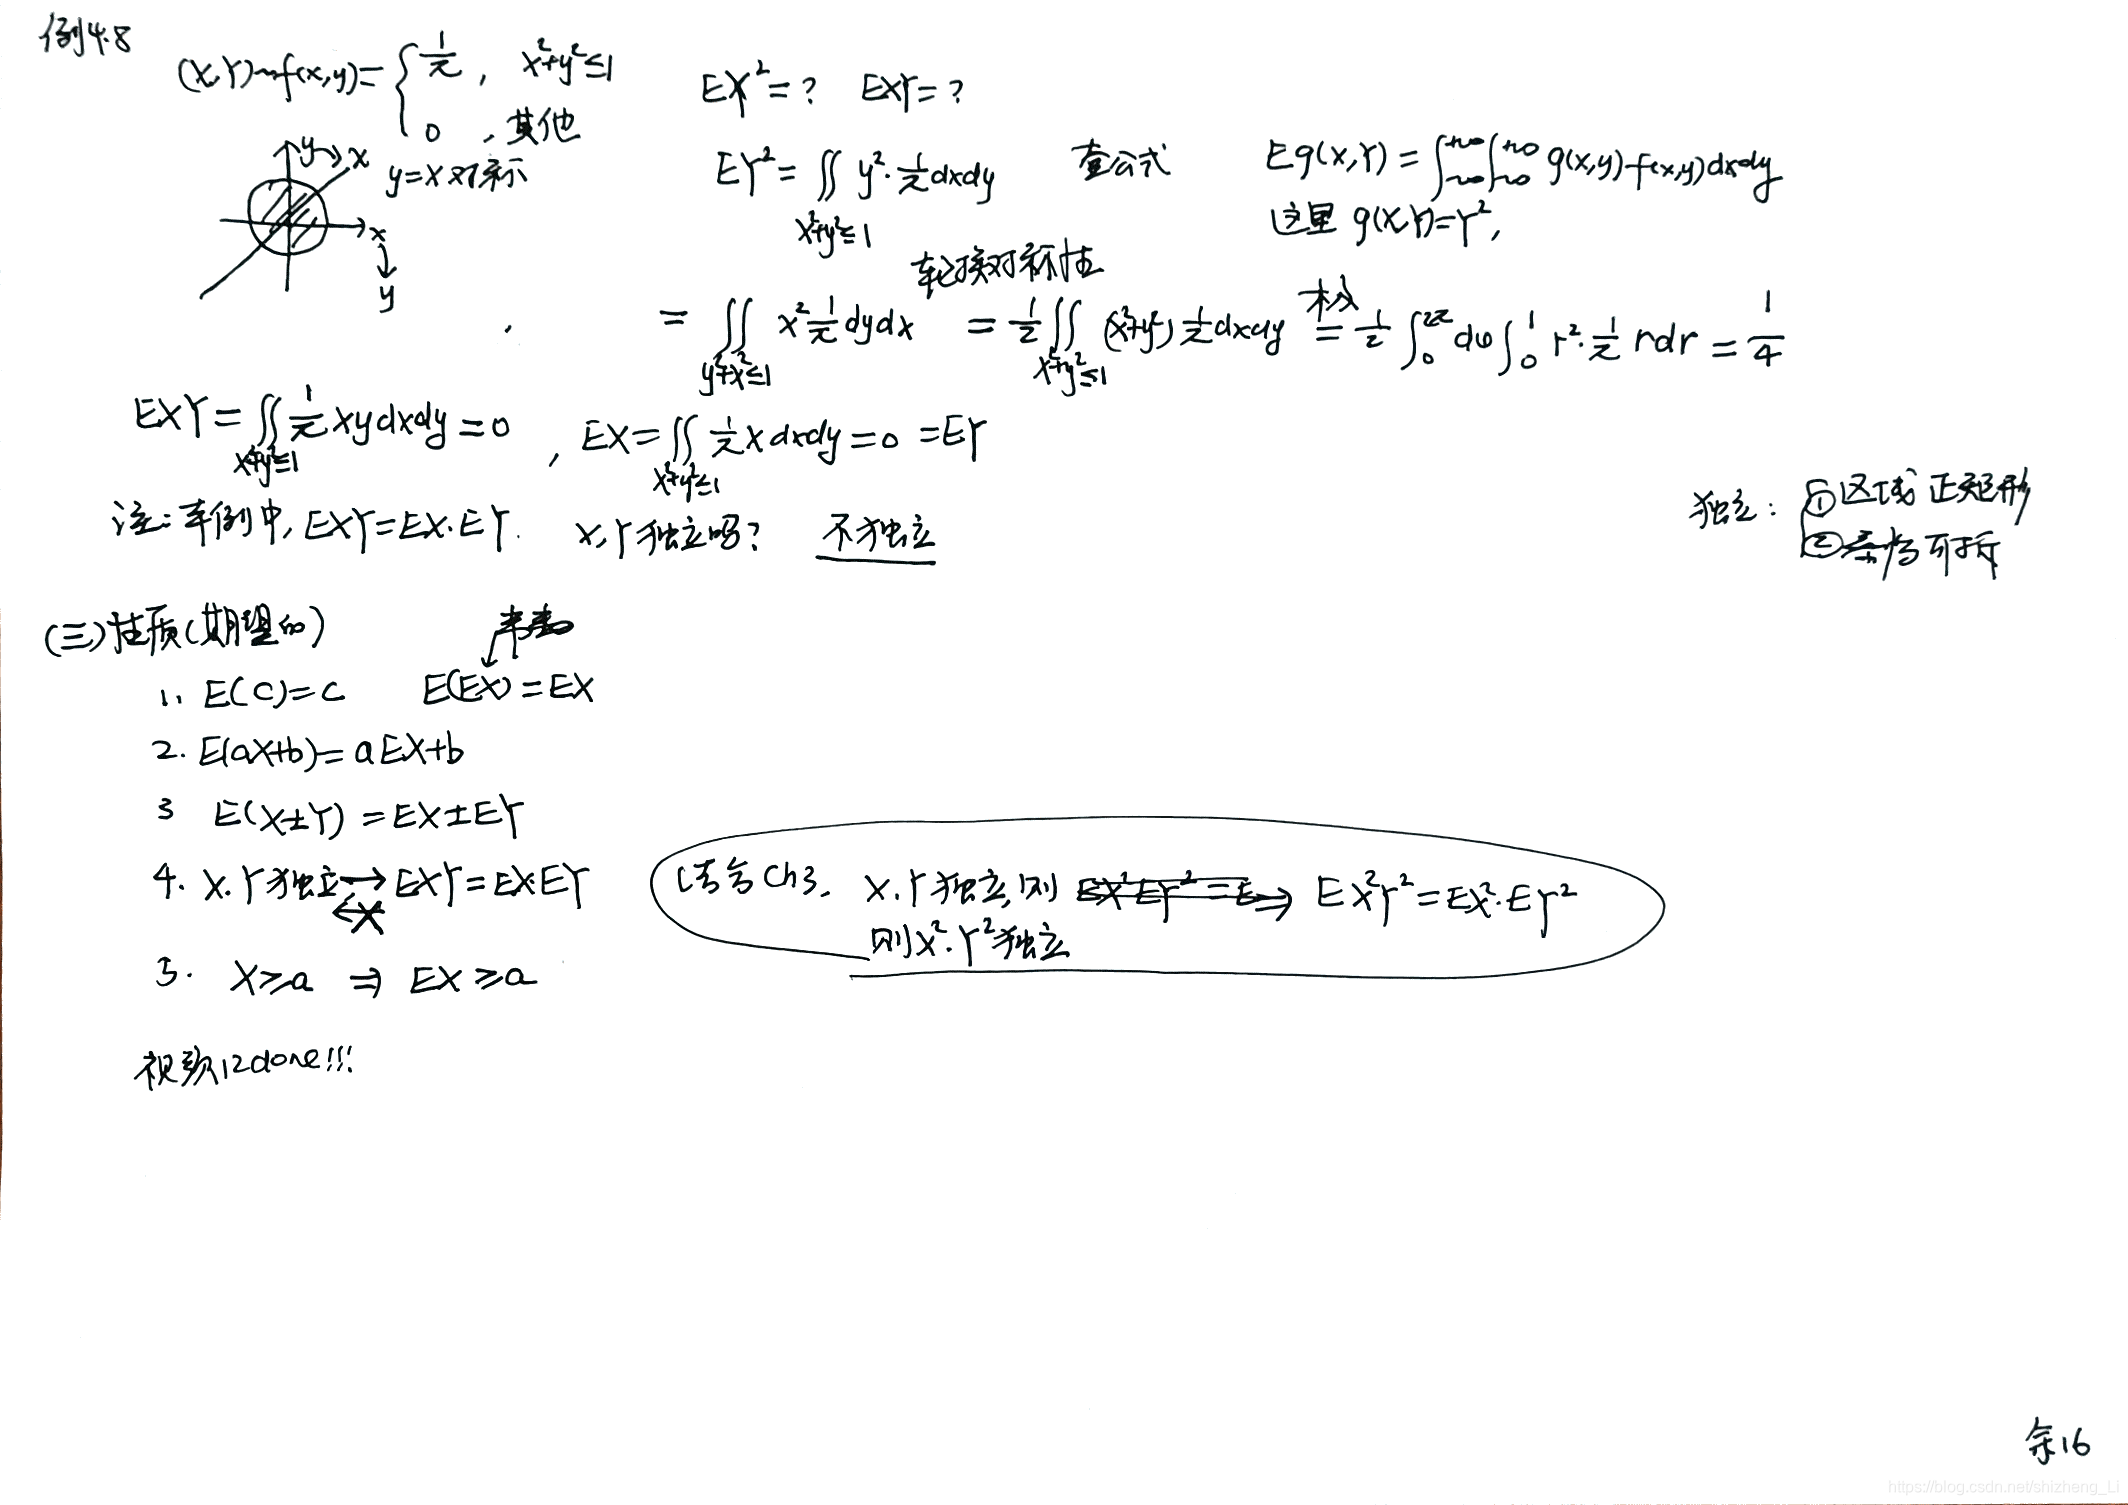 例4.8
(X,Y)~f(x,y)={ 1/π , x²+y²≤1
0 , 其他
EY²=? EXY=?
y x
y=x对称
x
y
EY²=∬ y²·1/π dxdy 查公式 Eg(X,Y)=∫∫ g(x,y)f(x,y)dxdy
x²+y²≤1
这里 g(X,Y)=Y²,
轮换对称性
=∬ x² 1/π dydx = 1/2∬ (x²+y²)1/π dxdy = 1/2∫₀^2π dφ∫₀^1 r²·1/π rdr = 1/4
y²+x²≤1 x²+y²≤1
EXY=∬ 1/π xydxdy=0 , EX=∬ 1/π xdxdy=0 =EY
x²+y²≤1 x²+y²≤1
注:本例中,EXY=EX·EY. X,Y独立吗? 不独立
独立: ①区域正矩形
② 可拆
(三)性质(期望的)
1. E(C)=C E(EX)=EX
2. E(aX+b)=aEX+b
3 E(X±Y)=EX±EY
4. X.Y独立→EXY=EX·EY
←X
结合Ch3. X.Y独立,则 EX²EY²=E ⇒ EX²Y²=EX²·EY²
则X².Y²独立
5. X≥a ⇒ EX≥a
视频12done!!!
余16
https://blog.csdn.net/shizheng_Li